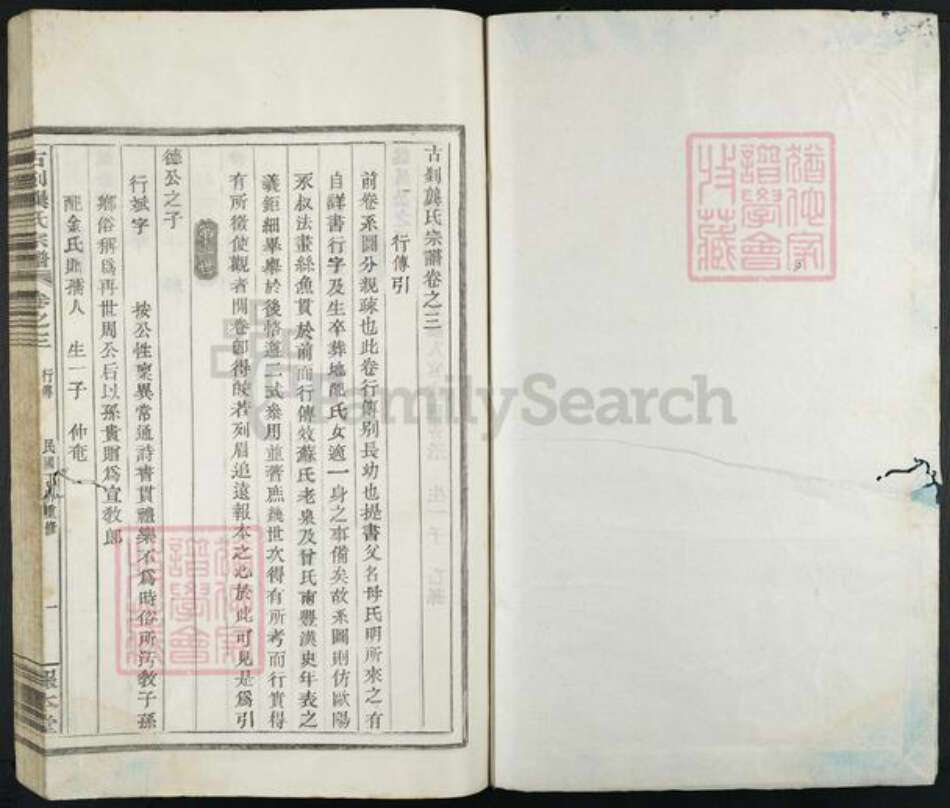 古剡龔氏宗譜卷之三
行傳引
前卷系圖分親疎也此卷行傳别長幼也提書父名母氏明所來之有
自詳書行字及生卒葬地配氏女適一身之事備矣故系圖則仿歐陽
永叔法畫絲魚貫於前而行傳效蘇氏老泉及曾氏南豐漢史年表之
義鉅細畢舉於後恪遵二式叅用並著庶幾世次得有所考而行實得
有所徵使觀者開卷卽得皎若列眉追遠報本之心於此可見是爲引
第一世
德公之子
行 字 按公性稟異常通詩書貫禮樂不爲時俗所汚敎子孫
鄉俗稱爲再世周公后以孫貴贈爲宣敎郎
配金氏贈孺人 生一子 仲
古剡龔氏宗譜 卷之三 行傳 民國 重修 一
猶他家譜學會收藏
猶他家譜學會收藏
FamilySearch